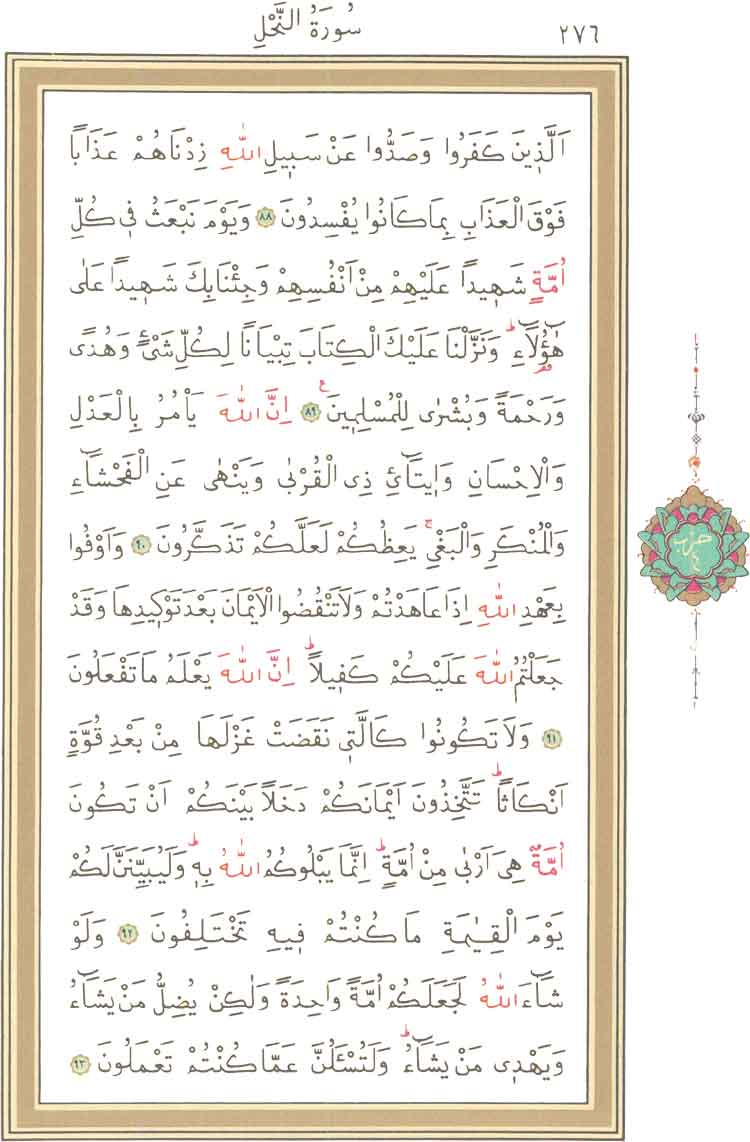 سُورَةُ النَّحْلِ
٢٧٦
اَلَّذ۪ينَ كَفَرُوا وَصَدُّوا عَنْ سَب۪يلِ اللّٰهِ زِدْنَاهُمْ عَذَابًا
فَوْقَ الْعَذَابِ بِمَا كَانُوا يُفْسِدُونَ ﴿٨٨﴾ وَيَوْمَ نَبْعَثُ ف۪ي كُلِّ
اُمَّةٍ شَه۪يدًا عَلَيْهِمْ مِنْ اَنْفُسِهِمْ وَجِئْنَا بِكَ شَه۪يدًا عَلٰى
هٰٓؤُ۬لَٓاءِۜ وَنَزَّلْنَا عَلَيْكَ الْكِتَابَ تِبْيَانًا لِكُلِّ شَيْءٍ وَهُدًى
وَرَحْمَةً وَبُشْرٰى لِلْمُسْلِم۪ينَ ﴿٨٩﴾ ع اِنَّ اللّٰهَ يَأْمُرُ بِالْعَدْلِ
وَالْاِحْسَانِ وَا۪يتَٓائِ ذِي الْقُرْبٰى وَيَنْهٰى عَنِ الْفَحْشَٓاءِ
وَالْمُنْكَرِ وَالْبَغْيِۚ يَعِظُكُمْ لَعَلَّكُمْ تَذَكَّرُونَ ﴿٩٠﴾ وَاَوْفُوا
بِعَهْدِ اللّٰهِ اِذَا عَاهَدْتُمْ وَلَا تَنْقُضُوا الْاَيْمَانَ بَعْدَ تَوْك۪يدِهَا وَقَدْ
جَعَلْتُمُ اللّٰهَ عَلَيْكُمْ كَف۪يلًاۜ اِنَّ اللّٰهَ يَعْلَمُ مَا تَفْعَلُونَ
﴿٩١﴾ وَلَا تَكُونُوا كَالَّت۪ي نَقَضَتْ غَزْلَهَا مِنْ بَعْدِ قُوَّةٍ
اَنْكَاثًاۜ تَتَّخِذُونَ اَيْمَانَكُمْ دَخَلًا بَيْنَكُمْ اَنْ تَكُونَ
اُمَّةٌ هِيَ اَرْبٰى مِنْ اُمَّةٍۜ اِنَّمَا يَبْلُوكُمُ اللّٰهُ بِه۪ۜ وَلَيُبَيِّنَنَّ لَكُمْ
يَوْمَ الْقِيٰمَةِ مَا كُنْتُمْ ف۪يهِ تَخْتَلِفُونَ ﴿٩٢﴾ وَلَوْ
شَٓاءَ اللّٰهُ لَجَعَلَكُمْ اُمَّةً وَاحِدَةً وَلٰكِنْ يُضِلُّ مَنْ يَشَٓاءُ
وَيَهْد۪ي مَنْ يَشَٓاءُۜ وَلَتُسْـَٔلُنَّ عَمَّا كُنْتُمْ تَعْمَلُونَ ﴿٩٣﴾
حزب